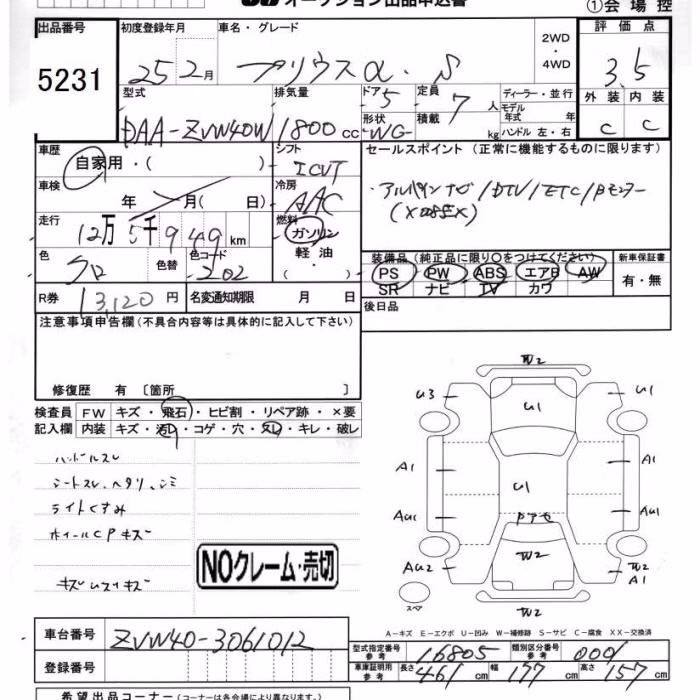 オークション出品申込書
①会場控
出品番号
初度登録年月
車名・グレード
2WD
・
4WD
評価点
5231
25 2月
プリウスα・S
3.5
型式
排気量
ドア
定員
ディーラー・並行
外装
内装
5
7
人
モデル
年式 年
形状
積載
kg
ハンドル 左・右
DAA-ZVW40W
1800
cc
WG
C
C
車歴
自家用・( )
シフト
ICVT
セールスポイント (正常に機能するものに限ります)
アルパインナビ/DTV/ETC/Bモニター
車検
年 月( 日)
冷房
AAC
走行
12万5千949km
燃料
ガソリン
軽油
・( )
色
クロ
色替
色コード
202
装備品(純正品に限り〇をつけてください)
新車保証書
PS
PW
ABS
エアB
AW
有・無
SR
ナビ
TV
カワ
R券
13,120円
名変通知期限 月 日
後日品
注意事項申告欄(不具合内容等は具体的に記入して下さい)
修復歴 有〔箇所 〕
検査員
記入欄
FW
キズ・飛石・ヒビ割・リペア跡・×要
内装
キズ・汚レ・コゲ・穴・スレ・キレ・破レ
ハンドルスレ
シートスレ、ヘタリ、シミ
ライトくすみ
ホイールCPキズ
NOクレーム・売切
W2
U3
U1
U1
A1
A1
U1
AU1
AU1
ドアセ
W2
AU2
W2
A1
スペア
W2
A-キズ E-エクボ U-凹み W-補修跡 S-サビ C-腐食 XX-交換済
車台番号
ZVW40-3061012
登録番号
型式指定番号
参考
16805
類別区分番号
参考
0001
車庫証明用
参考
長さ
461cm
幅
177cm
高さ
157cm
希望出品コーナー(コーナーは各会場により異なります。)